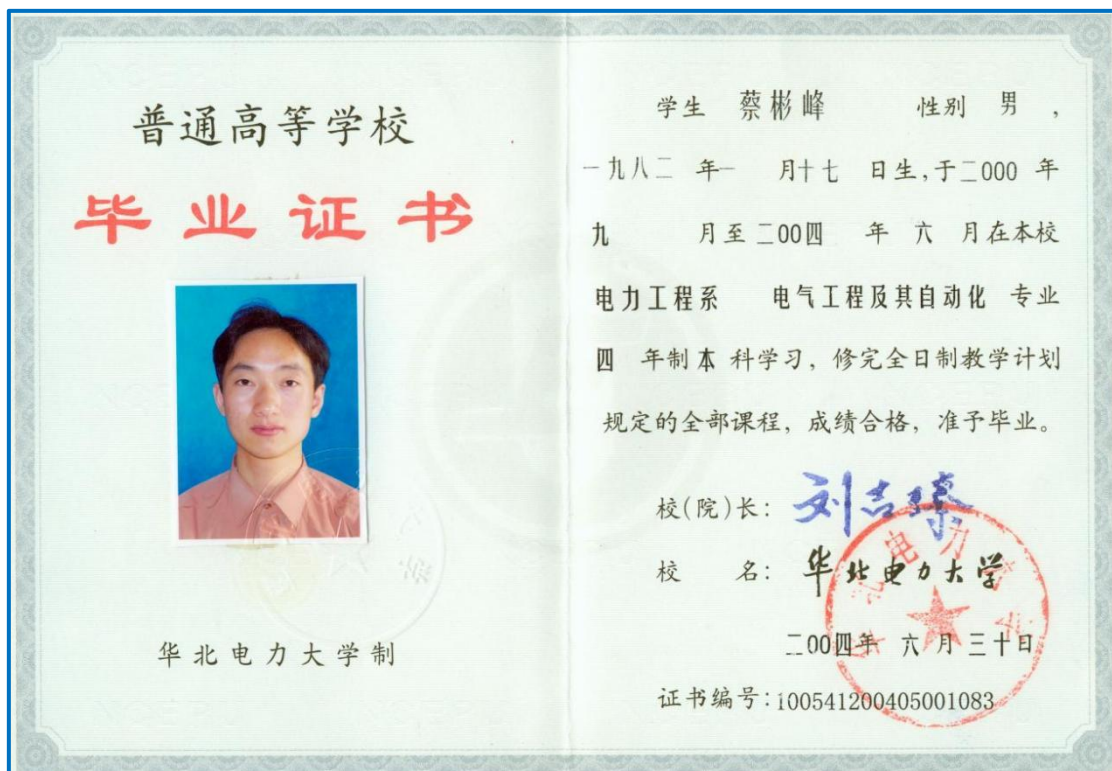 普通高等学校
毕业证书
华北电力大学制
学生 蔡彬峰 性别 男，
一九八二 年一 月十七 日生，于二000 年
九 月至二00四 年 六 月在本校
电力工程系 电气工程及其自动化 专业
四 年制本 科学习，修完全日制教学计划
规定的全部课程，成绩合格，准予毕业。
校(院)长：刘吉臻
校 名：华北电力大学
华北电力大学
二00四年 六 月 三十日
证书编号：100541200405001083